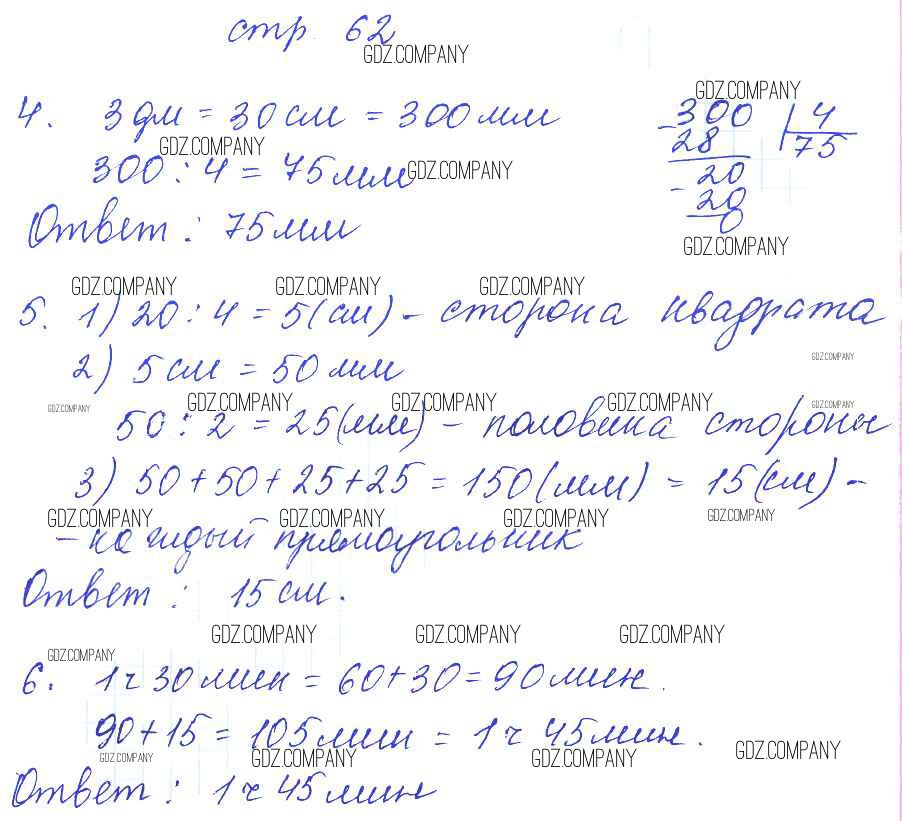 стр 62
GDZ.COMPANY
GDZ.COMPANY
4. 3 дм = 30 см = 300 мм
300 | 4
GDZ.COMPANY
- 28 75
300 : 4 = 75 мм GDZ.COMPANY
- 20
20
0
Ответ : 75 мм
GDZ.COMPANY
GDZ.COMPANY GDZ.COMPANY GDZ.COMPANY
5. 1) 20 : 4 = 5 (см) - сторона квадрата
GDZ.COMPANY
2) 5 см = 50 мм
GDZ.COMPANY GDZ.COMPANY GDZ.COMPANY GDZ.COMPANY GDZ.COMPANY
50 : 2 = 25 (мм) - половина стороны
3) 50 + 50 + 25 + 25 = 150 (мм) = 15 (см) -
GDZ.COMPANY GDZ.COMPANY GDZ.COMPANY GDZ.COMPANY
- каждый прямоугольник
Ответ : 15 см.
GDZ.COMPANY GDZ.COMPANY GDZ.COMPANY
GDZ.COMPANY
6. 1 ч 30 мин = 60 + 30 = 90 мин.
90 + 15 = 105 мин = 1 ч 45 мин.
GDZ.COMPANY GDZ.COMPANY GDZ.COMPANY GDZ.COMPANY
Ответ : 1 ч 45 мин